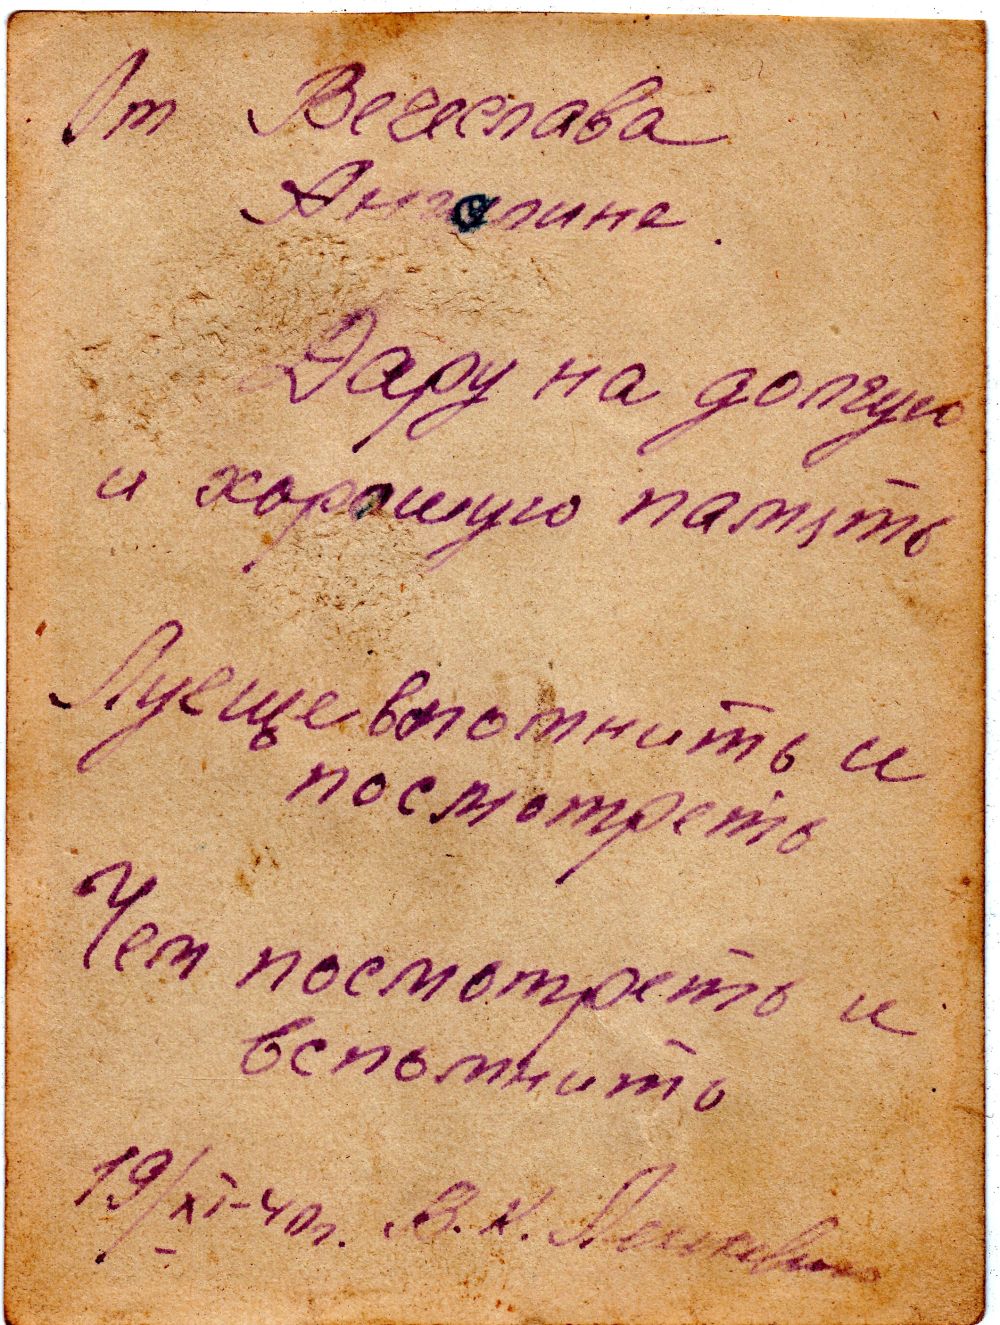 От Вечеслава
Ангелине.
Дару на долгую
и хорошую память
Луеще впомнить и
посмотреть
Чем посмотреть и
вспомнить
19/XI-4 В. К.